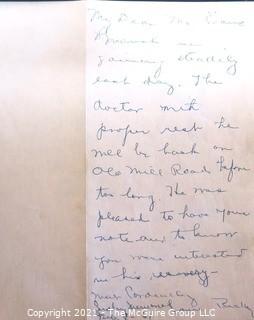 My Dear Mr.
gaining steadily
each day. The
doctor with
proper rest he
will be back on
Old Mill Road before
too long. He was
pleased to have your
note and to know
you were interested
in his recovery-
most Cordially
Copyright © 2021 - The McGuire Group LLC